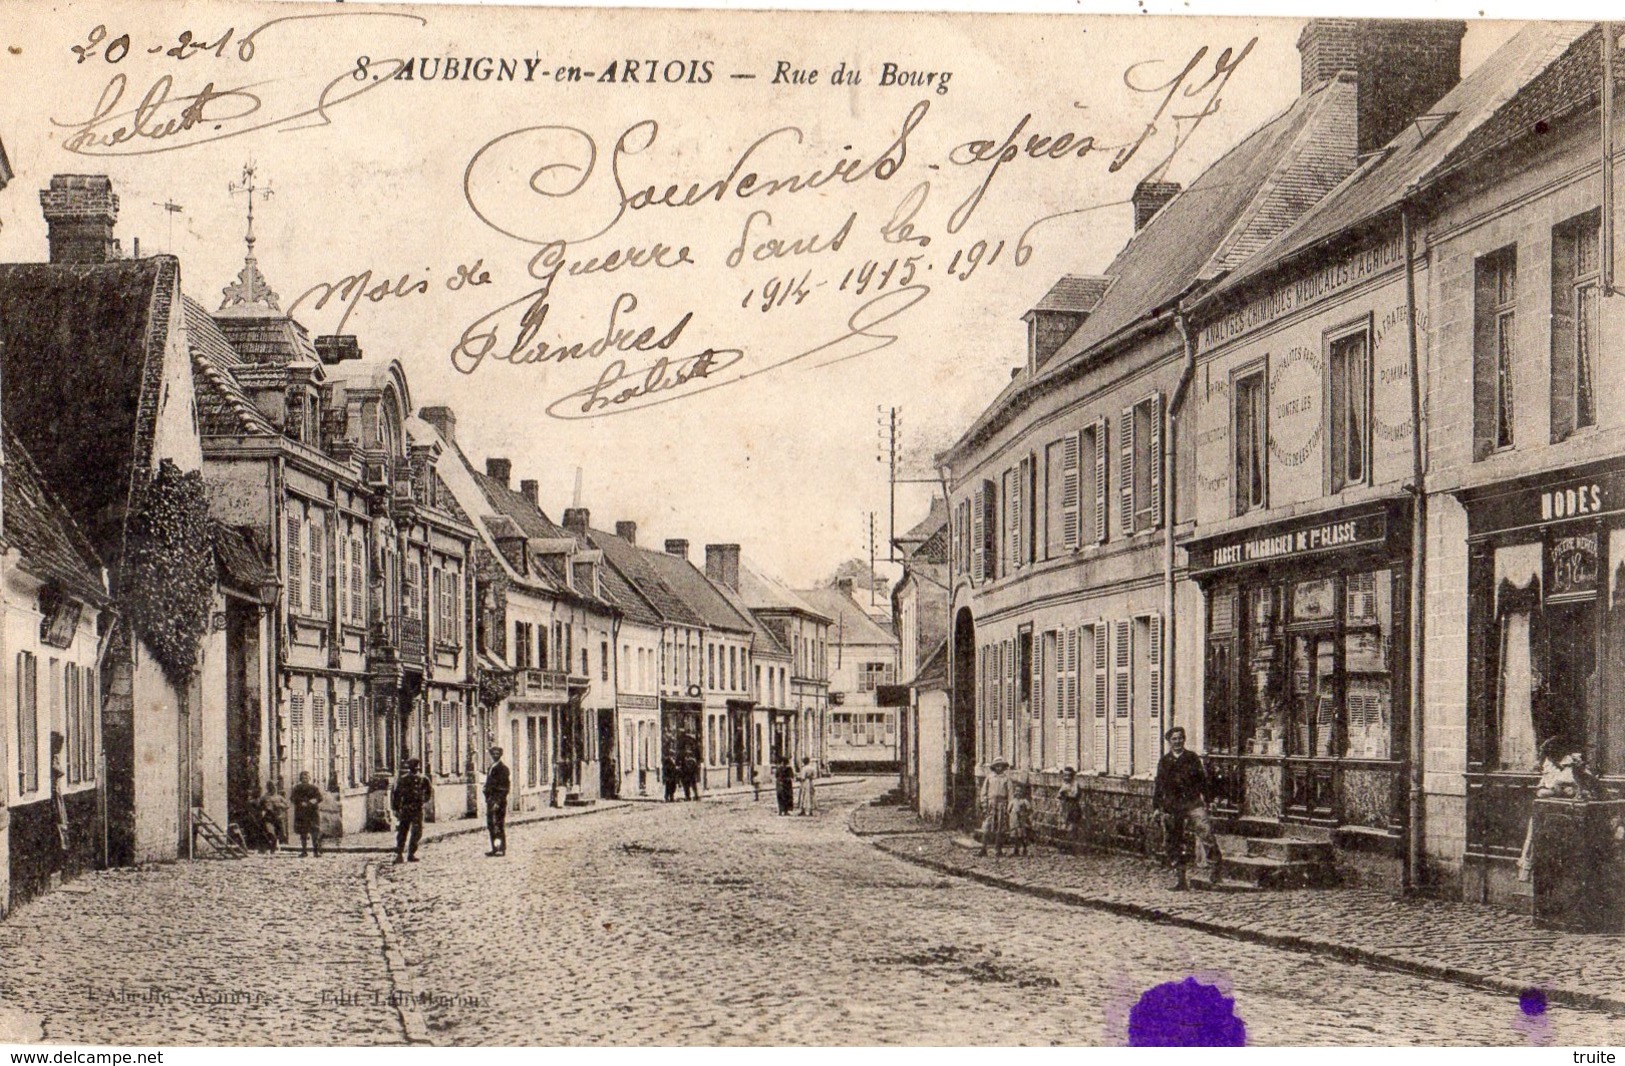 20-2-16
8. AUBIGNY-en-ARTOIS — Rue du Bourg
Souvenirs après 17
Mois de Guerre dans les
Flandres 1914-1915-1916
ANALYSES CHIMIQUES MÉDICALES & AGRICOLES
LA FRATERNELLE
SPÉCIALITÉS FARGET
CONTRE LES
MALADIES DE L'ESTOMAC
POMMADE
ANTIRHUMATIS
FARGET PHARMACIEN DE 1re CLASSE
MODES
L'Abeille Asnières
Edit.
www.delcampe.net
truite